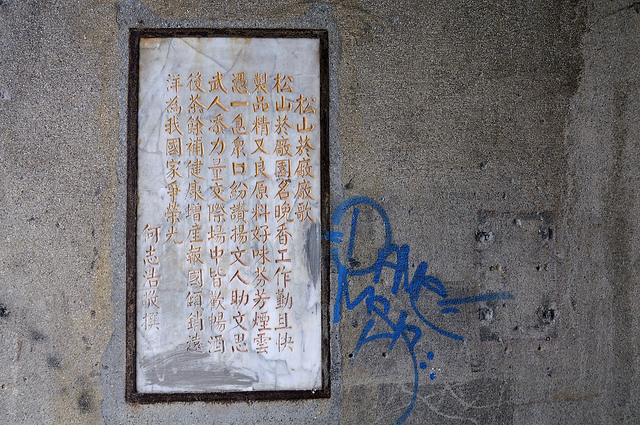 松山菸廠廠歌
松山菸廠園名晚香工作勤且快
製品精又良原料好味芬芳煙雲
遇一息眾口紛讚揚文人助文思
武人添力量交際場中皆歡暢酒
後茶餘補健康增產報國領銷遠
洋為我國家爭榮光
何志浩敬撰